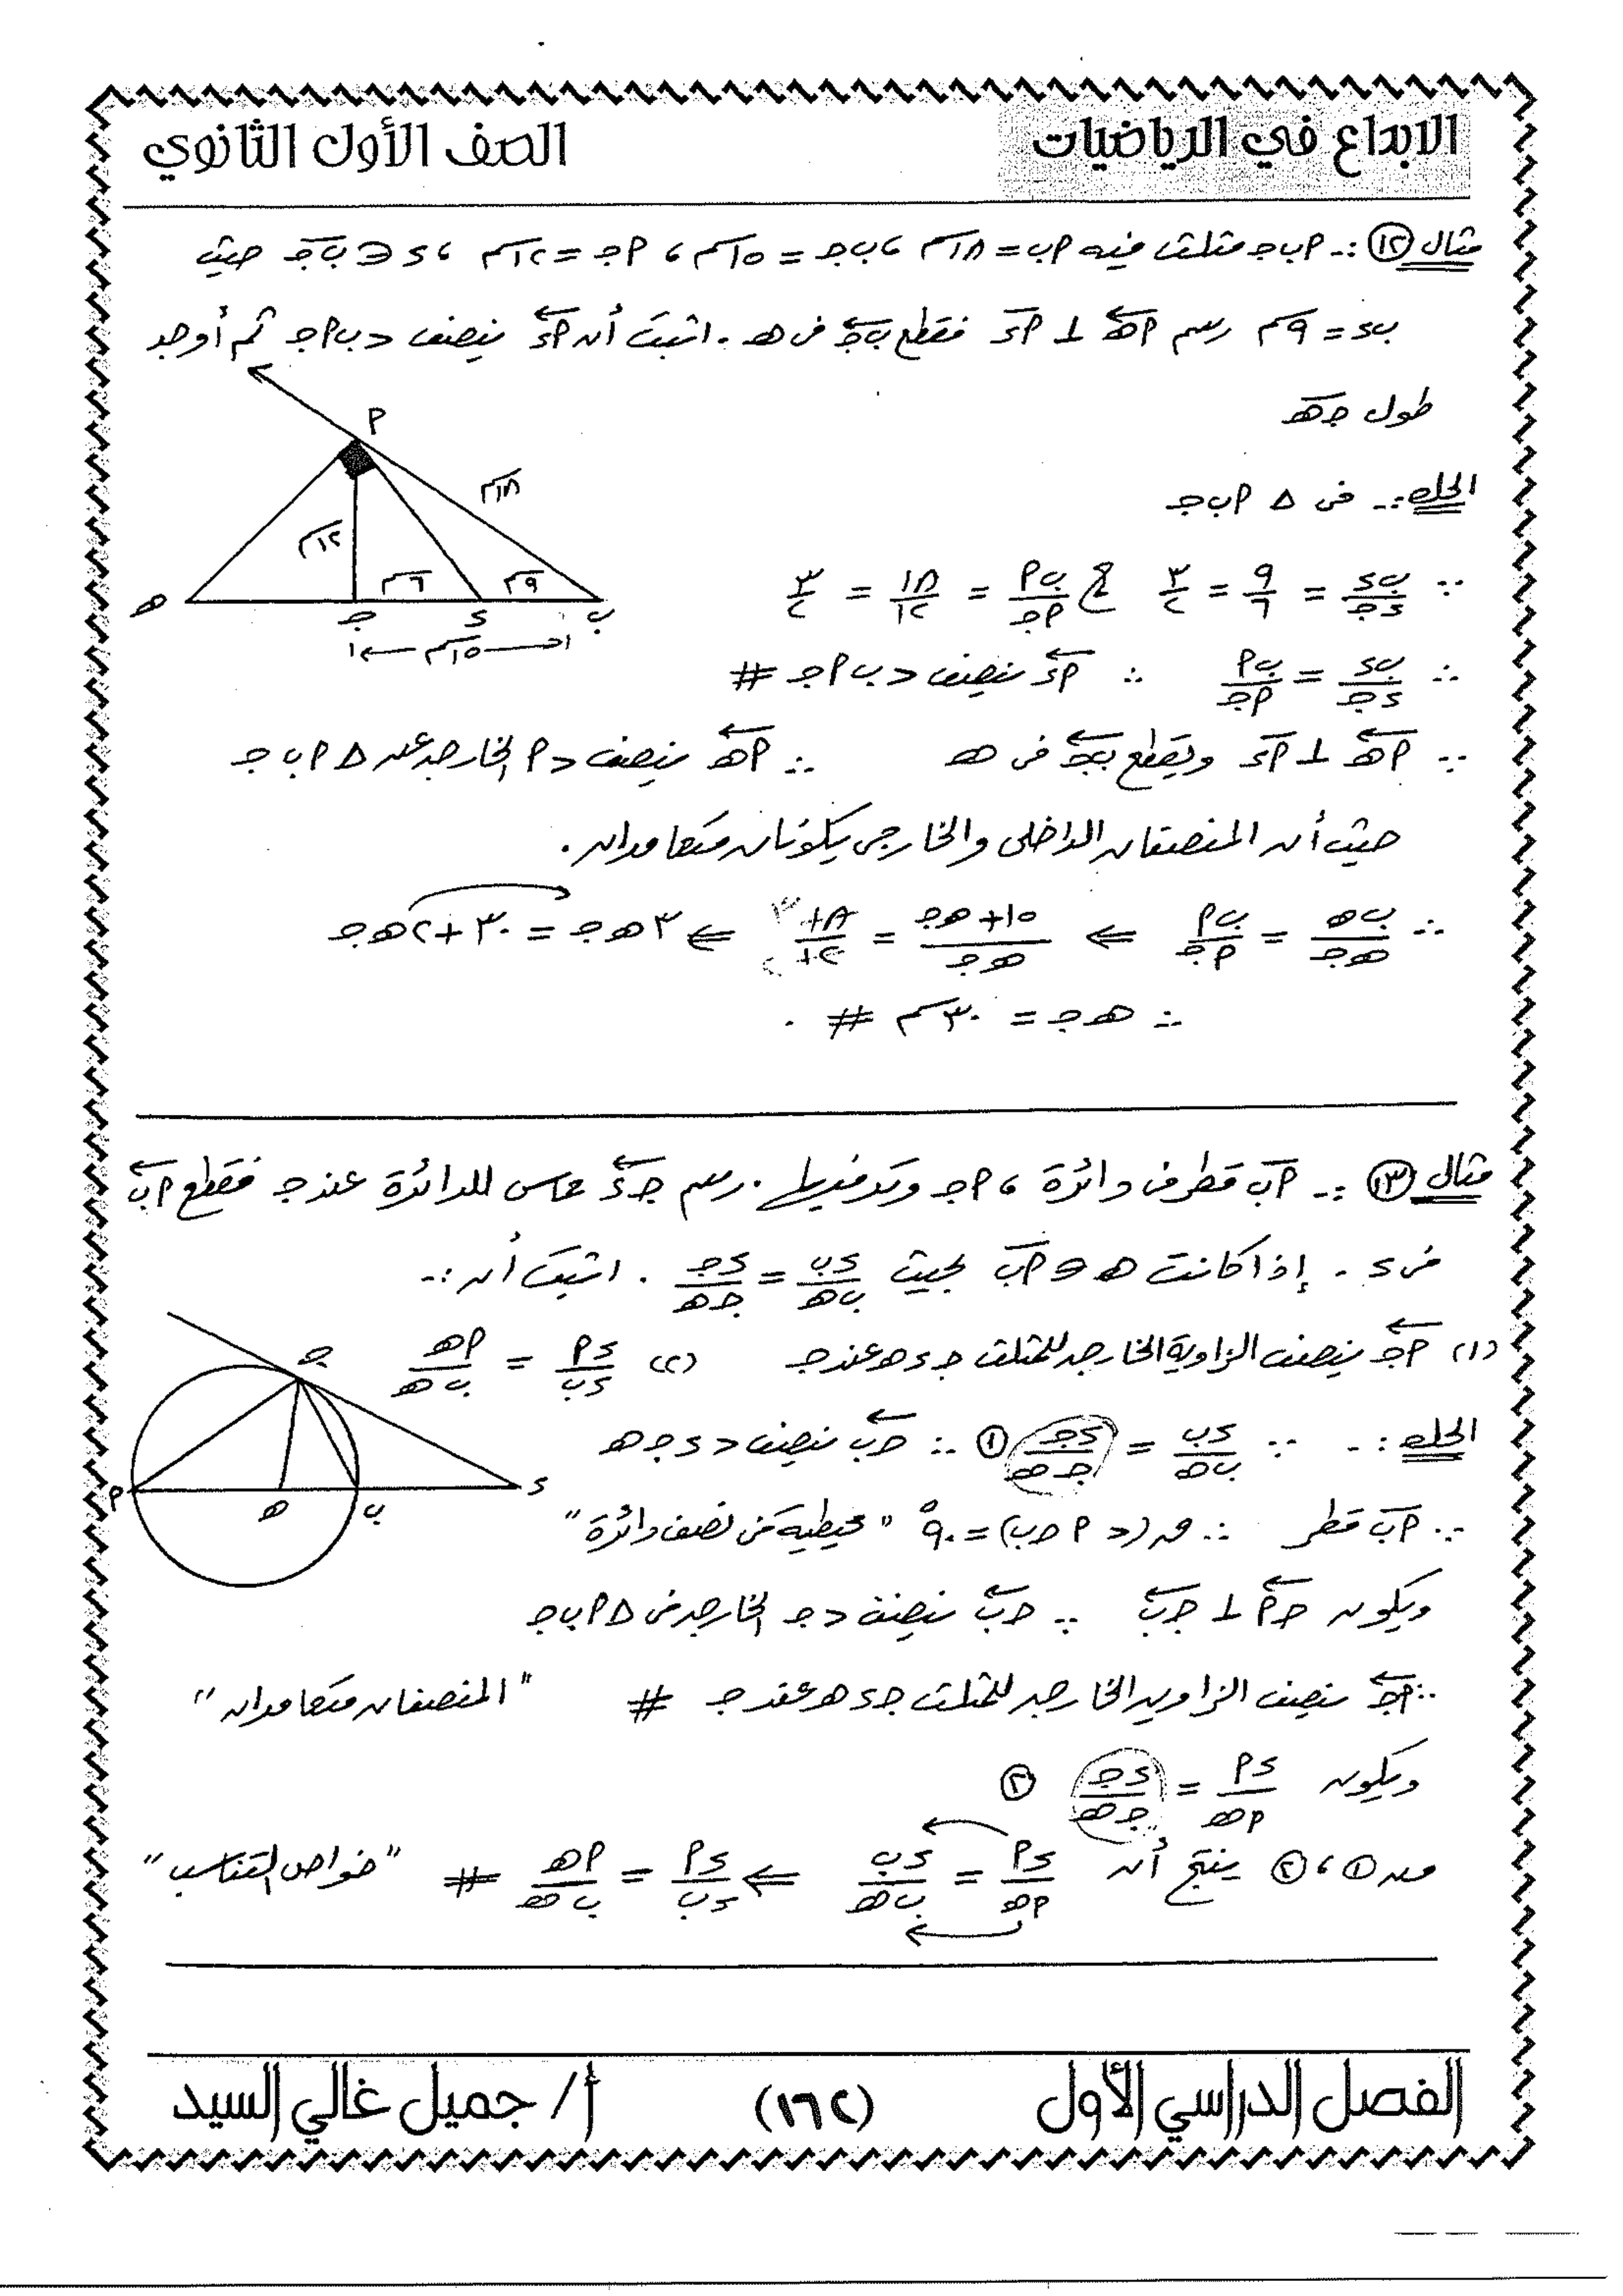 الابداع في الرياضيات
الصف الأول الثانوي
مثال (١٢) :- أ ب ج مثلث فيه أ ب = ١٨ سم ، ب ج = ١٥ سم ، أ ج = ١٢ سم ، د ∈ ب ج حيث
ب د = ٩ سم رسم أ هـ ⊥ أ د فقطع ب ج فى هـ . اثبت أن أ د ينصف > ب أ ج ثم أوجد
طول ج هـ
أ
١٨ سم
١٢ سم
٦ سم
٩ سم
هـ ج د ب
١٥ سم
الحل :- فى Δ أ ب ج
∵ ب د / د ج = ٩ / ٦ = ٣ / ٢ ، أ ب / أ ج = ١٨ / ١٢ = ٣ / ٢
∴ ب د / د ج = أ ب / أ ج ∴ أ د ينصف > ب أ ج #
∵ أ هـ ⊥ أ د ويقطع ب ج فى هـ ∴ أ هـ ينصف > أ الخارجه عن Δ أ ب ج
حيث أن المنصفان الداخلى والخارجى يكونان متعامدان .
∴ ب هـ / هـ ج = أ ب / أ ج ⇐ ١٥ + هـ ج / هـ ج = ١٨ / ١٢ ⇐ ٣ هـ ج = ٣٠ + ٢ هـ ج
∴ هـ ج = ٣٠ سم #
مثال (١٣) :- أ ب قطر فى دائرة ، أ ج وتر فيها . رسم ج د مماس للدائرة عند ج فقطع أ ب
فى د . إذا كانت هـ ∈ أ ب بحيث د ب / ب هـ = د ج / ج هـ . اثبت أن :-
(١) أ ج ينصف الزاوية الخارجه للمثلث ج د هـ عند ج (٢) د أ / د ب = أ هـ / ب هـ
ج
أ هـ ب د
الحل :- ∵ د ب / ب هـ = د ج / ج هـ ① ∴ ج ب ينصف > د ج هـ
∵ أ ب قطر ∴ ق (> أ ج ب) = ٩٠° " محيطيه فى نصف دائرة "
ويكون ج أ ⊥ ج ب ∵ ج ب ينصف > ج الخارجه فى Δ أ ب ج
∴ أ ج ينصف الزاويه الخارجه للمثلث ج د هـ عند ج # " المنصفان متعامدان "
ويكون د أ / أ هـ = د ج / ج هـ ②
من ① ، ② ينتج أن د أ / أ هـ = د ب / ب هـ ⇐ د أ / د ب = أ هـ / ب هـ # " خواص التناسب "
الفصل الدراسي الأول
(١٦٢)
أ / جميل غالي السيد